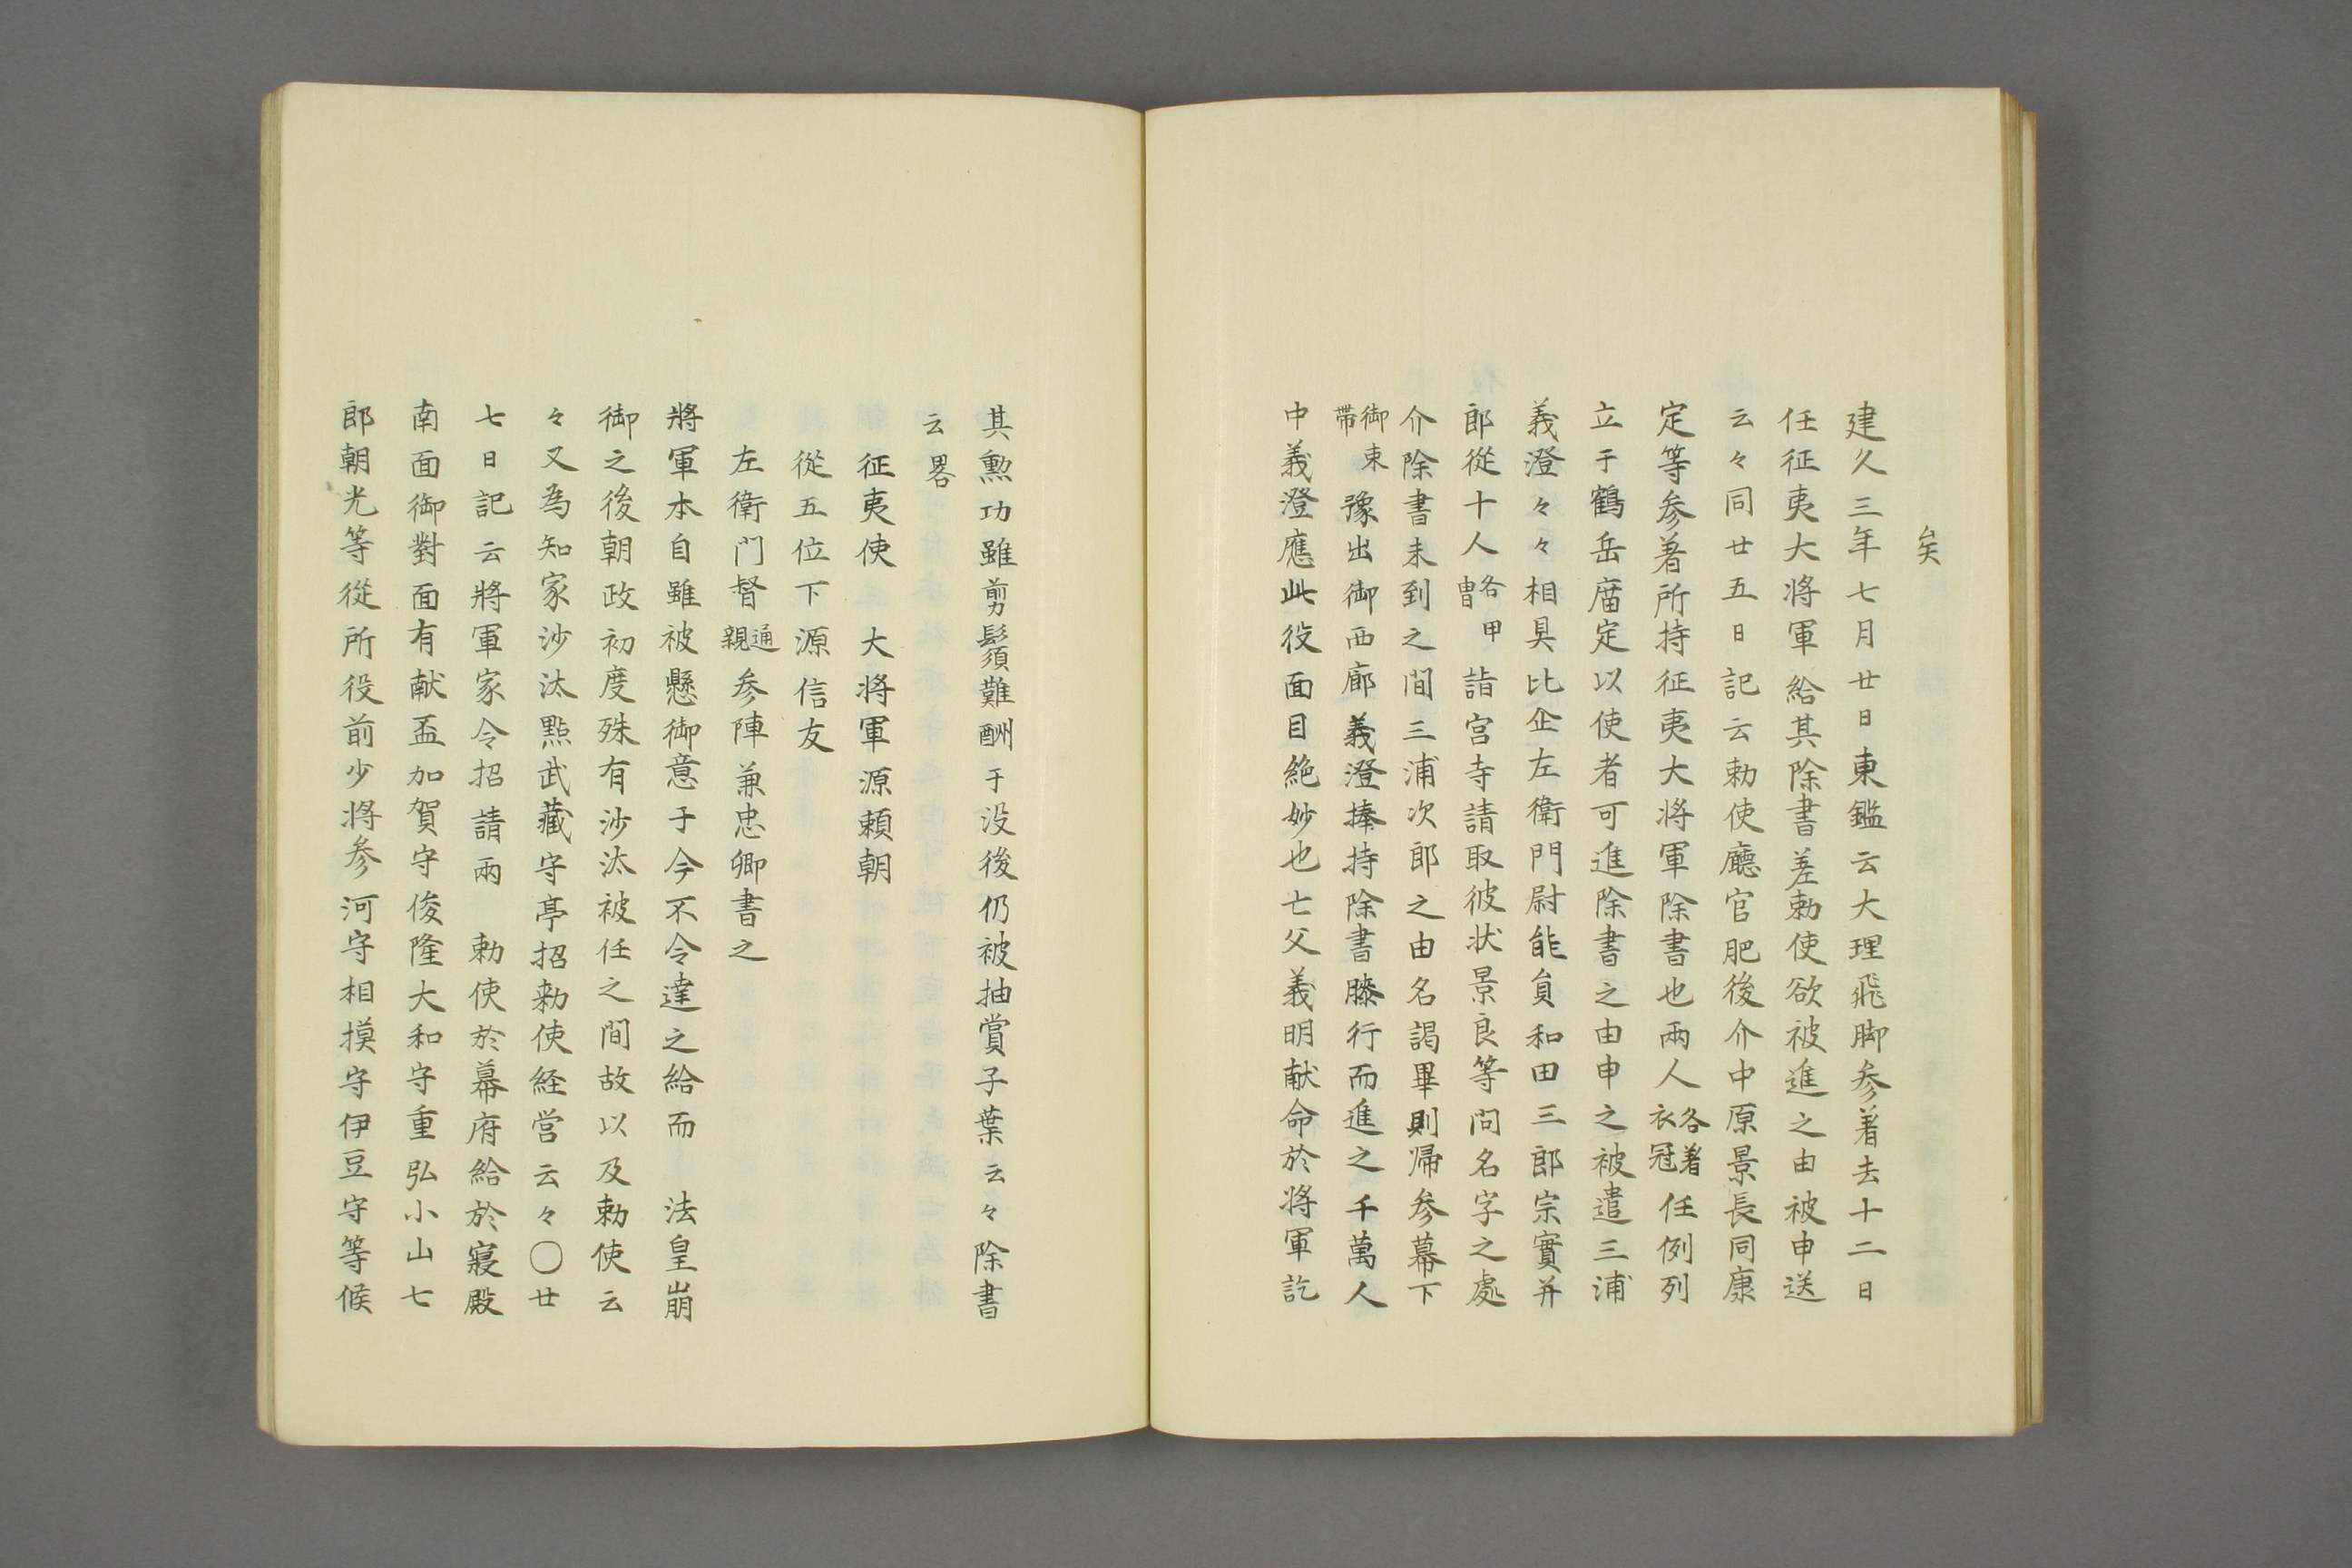 矣
建久三年七月廿日東鑑云大理飛脚参著去十二日
任征夷大将軍給其除書差勅使欲被進之由被申送
云々同廿五日記云勅使廳官肥後介中原景良同康
定等参著所持征夷大将軍除書也兩人各著衣冠任例列
立于鶴岳庿定以使者可進除書之由申之被遣三浦
義澄々々相具比企左衛門尉能員和田三郎宗實并
郎從十人各甲冑詣宮寺請取彼状景良等問名字之處
介除書未到之間三浦次郎之由名謁畢則帰参幕下
御束帯豫出御西廊義澄捧持除書膝行而進之千萬人
中義澄應此役面目絶妙也亡父義明献命於将軍訖
其勲功雖剪鬚難酬于没後仍被抽賞子葉云々除書
云畧
征夷使　大将軍源頼朝
從五位下源信友
左衛門督通親参陣兼忠卿書之
將軍本自雖被懸御意于今不令達之給而　法皇崩
御之後朝政初度殊有沙汰被任之間故以及勅使云
々又為知家沙汰點武藏守亭招勅使経営云々〇廿
七日記云將軍家令招請兩　勅使於幕府給於寝殿
南面御對面有献盃加賀守俊隆大和守重弘小山七
郎朝光等從所役前少将参河守相摸守伊豆守等候